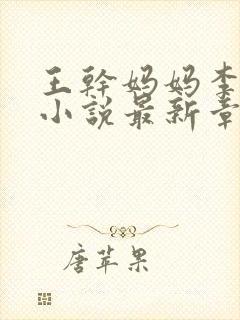 王幹妈妈李
小说最新章
唐苹果